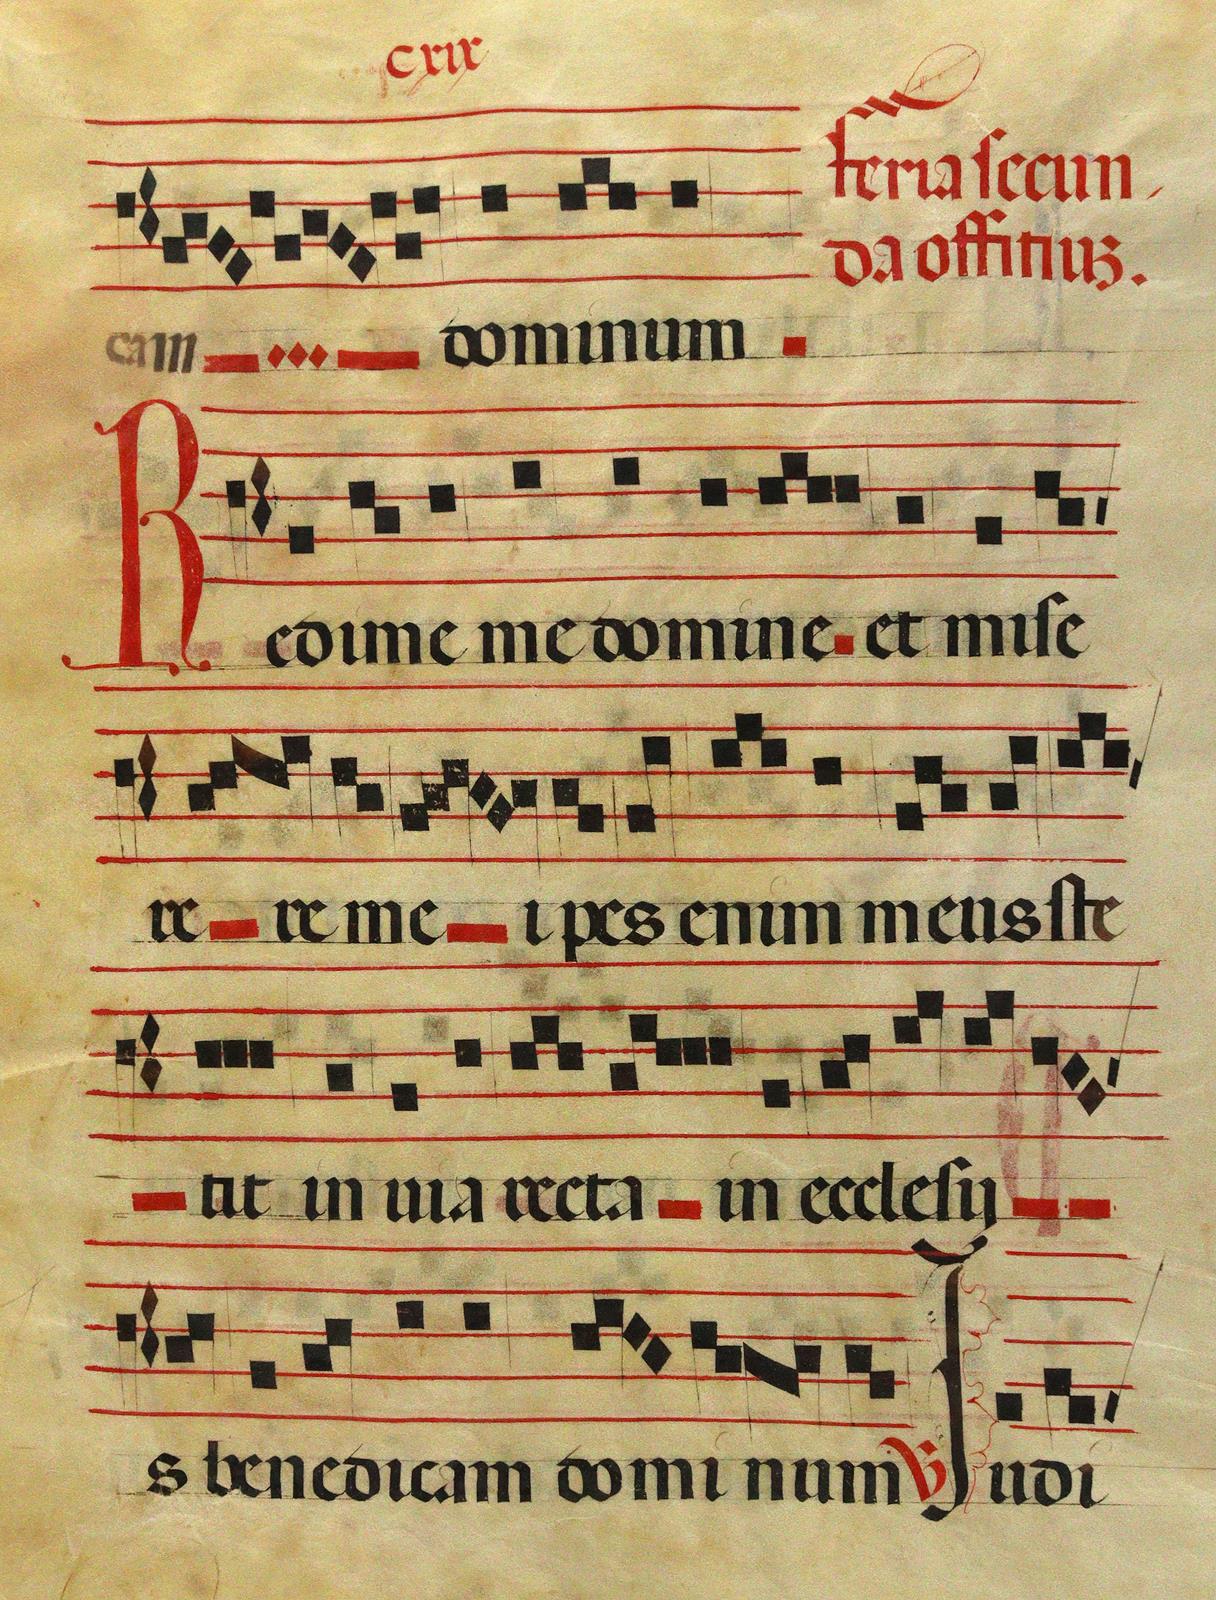 cxix
feria secun
da offitiuz.
cam dominum
Redime me domine. et mise
re re me i pes enim meus ste
tit in uia recta in ecclesij
s benedicam domi num ℣ Judi